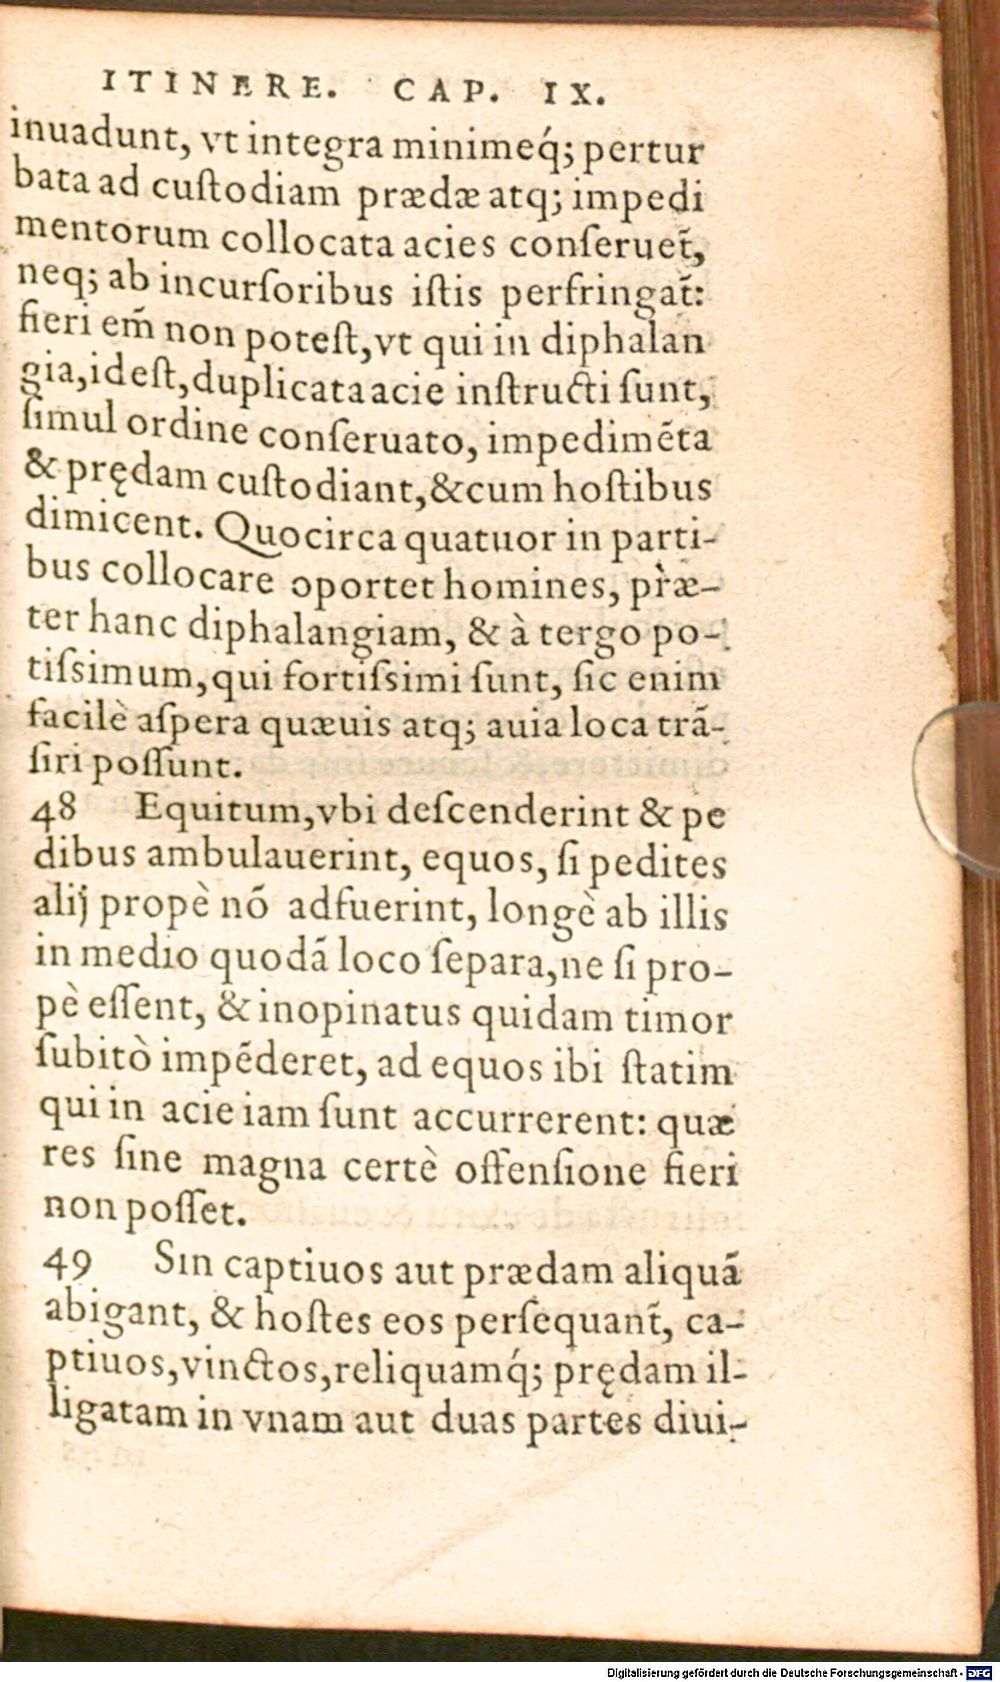 ITINERE. CAP. IX.
inuadunt, vt integra minimeq́; pertur
bata ad cuſtodiam prædæ atq; impedi
mentorum collocata acies conſeruet̃,
neq; ab incurſoribus iſtis perfringat̃:
fieri em̃ non poteſt, vt qui in diphalan
gia, id eſt, duplicata acie inſtructi ſunt,
ſimul ordine conſeruato, impedimẽta
& prędam cuſtodiant, & cum hoſtibus
dimicent. Quocirca quatuor in parti-
bus collocare oportet homines, præ-
ter hanc diphalangiam, & à tergo po-
tiſsimum, qui fortiſsimi ſunt, ſic enim
facilè aſpera quæuis atq; auia loca trã-
ſiri poſſunt.
48 Equitum, vbi deſcenderint & pe
dibus ambulauerint, equos, ſi pedites
alij propè nõ adfuerint, longè ab illis
in medio quodã loco ſepara, ne ſi pro-
pè eſſent, & inopinatus quidam timor
ſubitò impẽderet, ad equos ibi ſtatim
qui in acie iam ſunt accurrerent: quæ
res ſine magna certè offenſione fieri
non poſſet.
49 Sin captiuos aut prædam aliquã
abigant, & hoſtes eos perſequant̃, ca-
ptiuos, vinctos, reliquamq́; prędam il-
ligatam in vnam aut duas partes diui-
Digitalisierung gefördert durch die Deutsche Forschungsgemeinschaft - DFG